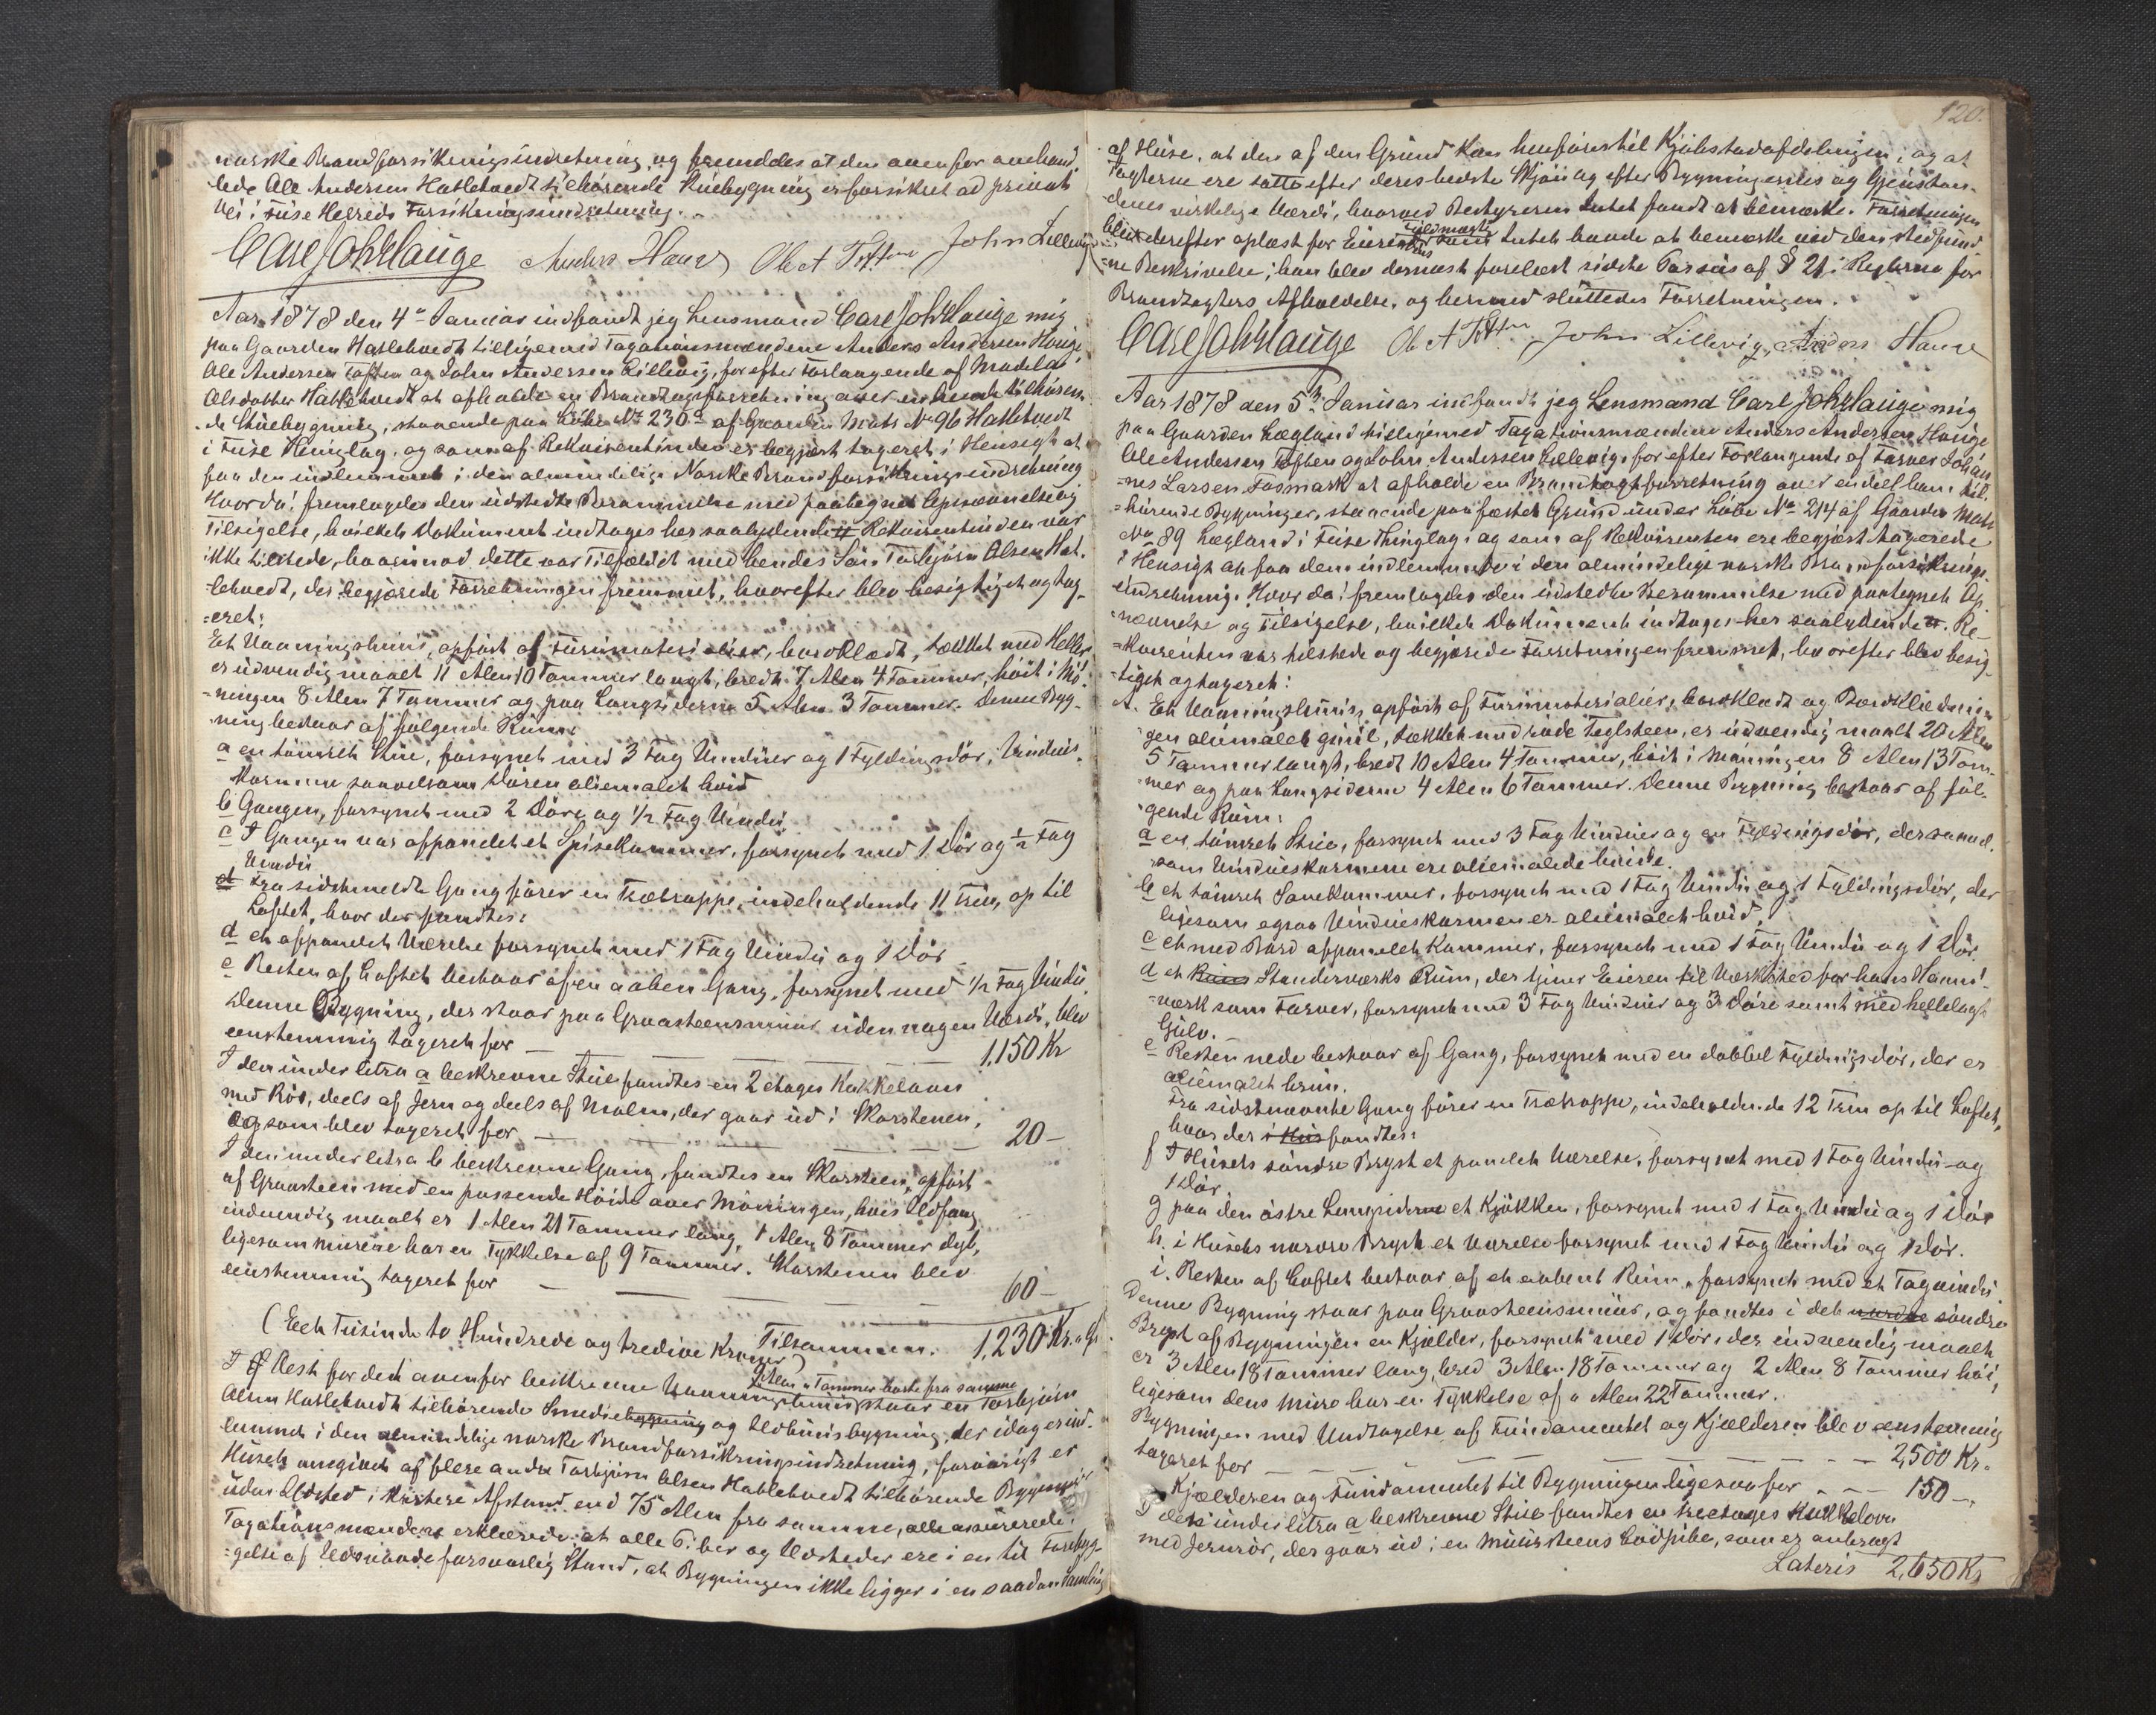 norske Brandforsikringsindretning, og formeldes at den ovenfor omhand-
lede Ole Andersen Hatlehvedt tilhørende Stuebygning er forsikret ad privat
Vei i Fuse Herreds Forsikringsindretning.
Carl Joh Hauge Anders Haug Ole A Toften John Lillevig
Aar 1878 den 4de Januar indfandt jeg Lensmand Carl Joh Hauge mig
paa Gaarden Hatlehvedt tilligemed Taxationsmændene Anders Andersen Hauge,
Ole Andersen Toften og John Andersen Lillevig, for efter Forlangende af Madela
Olsdotter Hatlehvedt at afholde en Brandtaxtforretning over en hende tilhøren-
de Stuebygning, staaende paa Løbe No 230a af Gaarden Matr No 96 Hatlehvedt
i Fuse Thinglag, og som af Rekvirentinden er begjært taxeret i Hensigt at
faa den indlemmet i den almindelige Norske Brandforsikringsindretning
Hvorda! fremlagdes den udstedte Berammelse med paategnet Opnævnelse og
Tilsigelse, hvilket Dokument indtages her saalydende # Rekvirentinden var
ikke tilstede, hvorimod dette var Tilfældet med hendes Søn Torbjørn Olsen Hat-
lehvedt, der begjærede Forretningen fremmet, hvorefter blev besigtiget og tax-
eret:
Et Vaaningshuus, opført af Furumaterialier, bordklædt, tækket med Heller
er udvendig maalt 11 Alen 10 Tommer langt, bredt 7 Alen 4 Tommer, høit i Mø-
ningen 8 Alen 7 Tommer og paa Langsiderne 5 Alen 3 Tommer. Denne Byg-
ning bestaar af følgende Rum:
a en tømret Stue, forsynet med 3 Fag Vinduer og 1 Fyldingsdør, Vindues-
karmene saavelsom Døren oliemalet hvid
b Gangen, forsynet med 2 Døre og 1/2 Fag Vindu,
c I Gangen var afpanelet et Spisekammer, forsynet med 1 Dør og 1/2 Fag
Vindu
d Fra sidstmeldte Gang fører en Trætrappe, indeholdende 11 Trin, op til
Loftet, hvor der fandtes:
d et afpanelet Værelse forsynet med 1 Fag Vindu og 1 Dør
e Resten af Loftet bestaar af en aaben Gang, forsynet med 1/2 Fag Vindu
Denne Bygning, der staar paa Graasteensmuur uden nogen Værdi, blev
enstemmig taxeret for — — — 1,150 Kr
I den under litra a beskrevne Stue fandtes en 2 etages Kakkelovn
med Rør, deels af Jern og deels af Malm, der gaar ud i Skorstenen,
og som blev taxeret for — — — 20 —
I den under litra b beskrevne Gang, fandtes en Skorsteen, opført
af Graasteen med en passende Høide over Møningen, hvis Ildfang
indvendig maalt er 1 Alen 21 Tommer lang, 1 Alen 8 Tommer dyb,
ligesom murene har en Tykkelse af 9 Tommer. Skorstenen blev
eenstemmig taxeret for — — — 60 —
Tilsammen. 1,230 Kr.
(Eet Tusinde to Hundrede og tredive Kroner)
I Øst for det ovenfor beskrevne Vaaningshuus
Alen Tommer borte fra samme
staar en Torbjørn
Olsen Hatlehvedt tilhørende Smediebygning og Ildhuusbygning, der idag er ind-
lemmet i den almindelige norske Brandforsikringsindretning, forøvrigt er
Huset omgivet af flere andre Torbjørn Olsen Hatlehvedt tilhørende Bygninger
uden Ildsted i kortere Afstand end 75 Alen fra samme, alle assurerede.
Taxationsmændene erklærede: at alle Piber og Ildsteder ere i en til Forebyg-
gelse af Ildsvaade forsvarlig Stand, at Bygningen ikke ligger i en saadan Samling
120.
af Huse, at den af den Grund kan henføres til Kjøbstadafdelingen; og at
Taxterne ere satte efter deres bedste Skjøn og efter Bygningernes og Gjenstan-
denes virkelige Værdi, hvorved Bestyreren Intet fandt at bemærke. Forretningen
blev derefter oplæst for Eierens
Fuldmægtig
som Intet havde at bemærke ved den stedfund-
ne Beskrivelse; han blev dernæst forelæst sidste Passus af § 21 i Reglerne for
Brandtaxters Afholdelse, og hermed sluttedes Forretningen.
Carl Joh Hauge Ole A Toften John Lillevig, Anders Hauge
Aar 1878 den 5te Januar indfandt jeg Lensmand Carl Joh Hauge mig
paa Gaarden Lægland tilligemed Taxationsmændene Anders Andersen Hauge
Ole Andersen Toften og John Andersen Lillevig, for efter Forlangende af Farver Johan-
nes Larsen Fosmark at afholde en Brandtaxtforretning over endel ham til-
hørende Bygninger, staaende paa fæstet Grund under Løbe No 214 af Gaarden Matr
No 89 Lægland i Fuse Thinglag, og som af Rekvirenten ere begjært taxerede
i Hensigt at faa dem indlemmede i den almindelige norske Brandforsikrings-
indretning. Hvorda! fremlagdes den udstedte Berammelse med paategnet Op-
nævnelse og Tilsigelse, hvilket Dokument indtages her saalydende #. Re-
kvirenten var tilstede og begjærede Forretningen fremmet, hvorefter blev besig-
tiget og taxeret:
A. Et Vaaningshuus, opført af Furumaterialier, bordklædt og Bordklædnin-
gen oliemalet guul, tækket med røde Teglsteen, er udvendig maalt 20 Alen
5 Tommer langt, bredt 10 Alen 4 Tommer, høit i Møningen 8 Alen 13 Tom-
mer og paa Langsiderne 4 Alen 6 Tommer. Denne Bygning bestaar af føl-
gende Rum:
a en tømret Stue, forsynet med 3 Fag Vinduer og en Fyldingsdør, der saavel-
som Vindueskarmene ere oliemalede hvide.
b et tømret Sovekammer, forsynet med 1 Fag Vindu og 1 Fyldingsdør, der
ligesom ogsaa Vindueskarmen er oliemalet hvid.
c et med Bord afpanelet Kammer, forsynet med 1 Fag Vindu og 1 Dør
d et Stenderværks Rum, der tjener Eieren til Værksted for hans Haand-
værk som Farver, forsynet med 3 Fag Vinduer og 3 Døre samt med hellelagt
Gulv.
e Resten nede bestaar af Gang, forsynet med en dobbel Fyldingsdør, der er
oliemalet bruun.
Fra sidstnævnte Gang fører en Trætrappe, indeholdende 12 Trin op til Loftet,
hvor der i Hus fandtes:
f I Husets søndre Bryst et panelet Værelse, forsynet med 1 Fag Vindu og
1 Dør
g paa den østre Langsiderne et Kjøkken, forsynet med 1 Fag Vindu og 1 Dør
h. i Husets nordre Bryst et Værelse forsynet med 1 Fag Vindu og 1 Dør.
i. Resten af Loftet bestaar af et aabent Rum, forsynet med et Tagvindu.
Denne Bygning staar paa Graasteensmuur, og fandtes i det nordre søndre
Bryst af Bygningen en Kjelder, forsynet med 1 Dør, der indvendig maalt
er 3 Alen 18 Tommer lang, bred 3 Alen 18 Tommer og 2 Alen 8 Tommer høi,
ligesom dens mure har en Tykkelse af " Alen 22 Tommer.
Bygningen med Undtagelse af Fundamentet og Kjælderen blev eenstemmig
taxeret for — — — 2,500 Kr.
Kjælderen og Fundamentet til Bygningen ligesaa for — — 150 —
I den under litra a beskrevne Stue fandtes en treetages Kakkelovn
med Jernrør, der gaar ud i en Muursteens Lodpibe, som er anbragt
Lateris 2,650 Kr